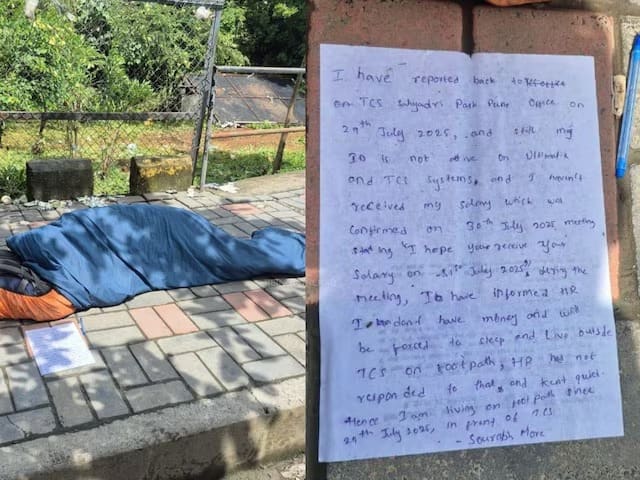 I have reported back to
on TCS Sahyadri Park Pune Office on
29th July 2025, and still my
ID is not ative on Ultimatix
and TCS systems, and I haven't
received my salary which was
confirmed on 30th July, 2025, meeting
stating "I hope your receive your
salary on 31st July 2025", during the
meeting, I have informed HR
I dont have money and will
be forced to sleep and live outside
TCS on footpath, HR has not
responded to that, and kept quiet.
Hence I am living on footpath since
29th July 2025, in front of TCS
- Sourabh More